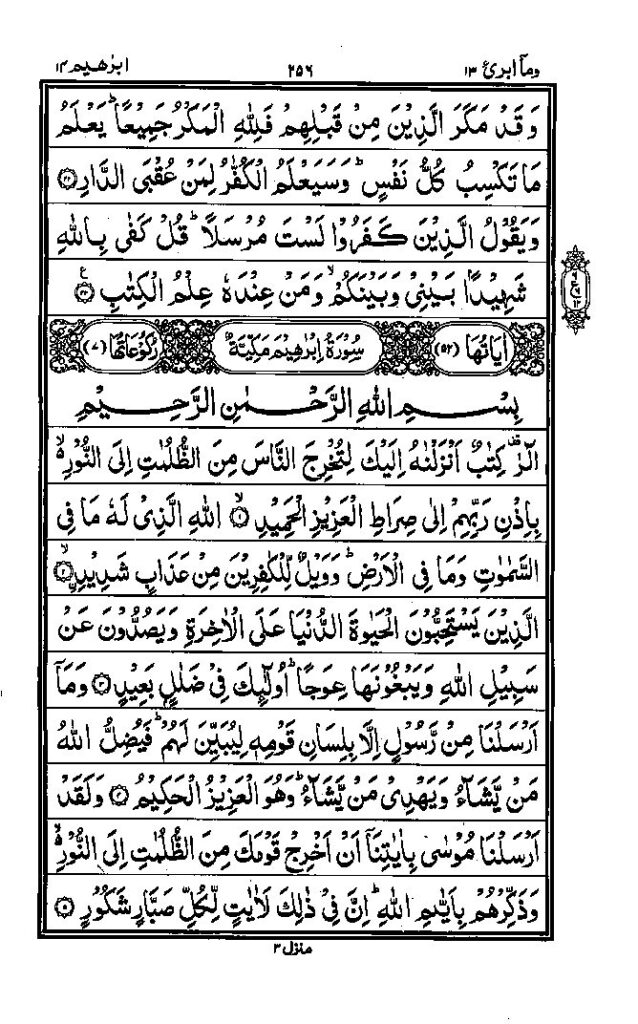 ابرٰهیم ١٤ ٢٥٦ ومآ ابرئ ١٣
وَقَدْ مَكَرَ الَّذِيْنَ مِنْ قَبْلِهِمْ فَلِلّٰهِ الْمَكْرُ جَمِيْعًا ؕ يَعْلَمُ
مَا تَكْسِبُ كُلُّ نَفْسٍ ؕ وَسَيَعْلَمُ الْكُفّٰرُ لِمَنْ عُقْبَى الدَّارِ ﴿٤٢﴾
وَيَقُوْلُ الَّذِيْنَ كَفَرُوْا لَسْتَ مُرْسَلًا ؕ قُلْ كَفٰى بِاللّٰهِ
شَهِيْدًۢا بَيْنِيْ وَبَيْنَكُمْ ۙ وَمَنْ عِنْدَهٗ عِلْمُ الْكِتٰبِ ﴿٤٣﴾ ع
اٰيَاتُهَا (٥٢) سُوْرَةُ اِبْرٰهِيْمَ مَكِّيَّةٌ رُكُوْعَاتُهَا (٧)
بِسْمِ اللّٰهِ الرَّحْمٰنِ الرَّحِيْمِ
الٓرٰ ۟ كِتٰبٌ اَنْزَلْنٰهُ اِلَيْكَ لِتُخْرِجَ النَّاسَ مِنَ الظُّلُمٰتِ اِلَى النُّوْرِ ۙ۬
بِاِذْنِ رَبِّهِمْ اِلٰى صِرَاطِ الْعَزِيْزِ الْحَمِيْدِ ۙ﴿١﴾ اللّٰهِ الَّذِيْ لَهٗ مَا فِى
السَّمٰوٰتِ وَمَا فِى الْاَرْضِ ؕ وَوَيْلٌ لِّلْكٰفِرِيْنَ مِنْ عَذَابٍ شَدِيْدِ ۙ﴿٢﴾
الَّذِيْنَ يَسْتَحِبُّوْنَ الْحَيٰوةَ الدُّنْيَا عَلَى الْاٰخِرَةِ وَيَصُدُّوْنَ عَنْ
سَبِيْلِ اللّٰهِ وَيَبْغُوْنَهَا عِوَجًا ؕ اُولٰٓئِكَ فِيْ ضَلٰلٍۭ بَعِيْدٍ ﴿٣﴾ وَمَآ
اَرْسَلْنَا مِنْ رَّسُوْلٍ اِلَّا بِلِسَانِ قَوْمِهٖ لِيُبَيِّنَ لَهُمْ ؕ فَيُضِلُّ اللّٰهُ
مَنْ يَّشَآءُ وَيَهْدِيْ مَنْ يَّشَآءُ ؕ وَهُوَ الْعَزِيْزُ الْحَكِيْمُ ﴿٤﴾ وَلَقَدْ
اَرْسَلْنَا مُوْسٰى بِاٰيٰتِنَآ اَنْ اَخْرِجْ قَوْمَكَ مِنَ الظُّلُمٰتِ اِلَى النُّوْرِ ۙ۬
وَذَكِّرْهُمْ بِاَيّٰىمِ اللّٰهِ ؕ اِنَّ فِيْ ذٰلِكَ لَاٰيٰتٍ لِّكُلِّ صَبَّارٍ شَكُوْرٍ ﴿٥﴾
منزل ٣